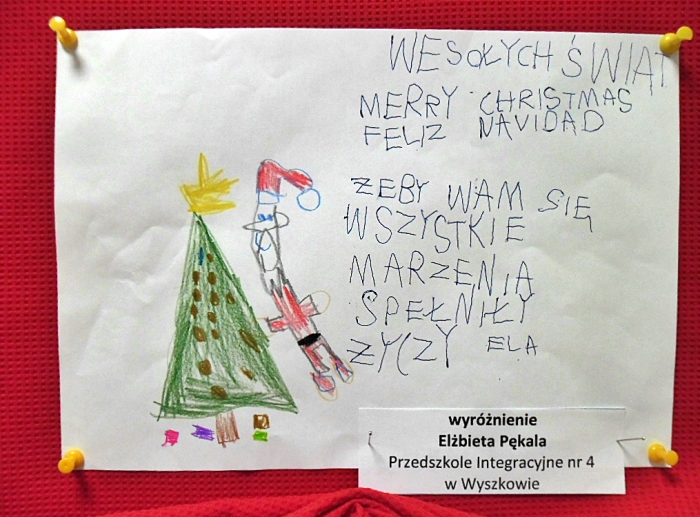 WESOŁYCH ŚWIĄT
MERRY CHRISTMAS
FELIZ NAVIDAD
ŻEBY WAM SIĘ
WSZYSTKIE
MARZENIA
SPEŁNIŁY
ŻYCZY ELA
wyróżnienie
Elżbieta Pękala
Przedszkole Integracyjne nr 4
w Wyszkowie